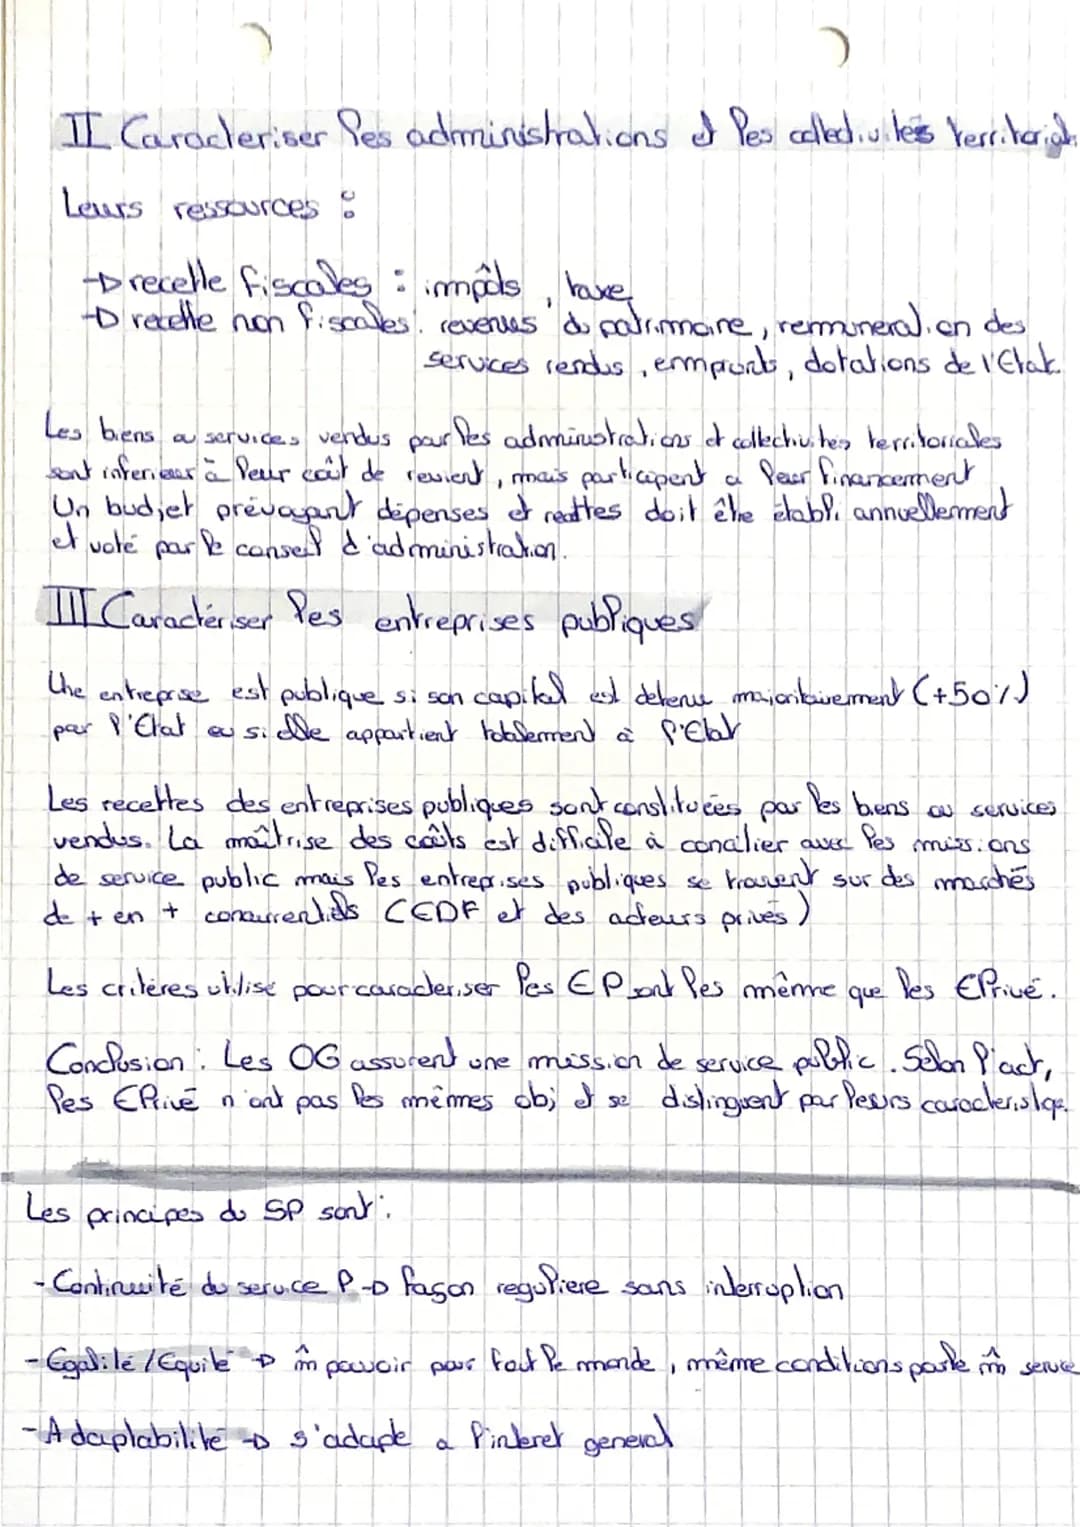 II Caracteriser les administrations et les collectivités territoriales
Leurs ressources :
→ recette fiscales : impôts, taxe
→ recette non fiscales : revenus du patrimoine, remuneration des
services rendus, emprunts, dotations de l'Etat
Les biens ou services vendus par les administrations et collectivites territoriales
sont inferieur à leur coût de revient, mais participent a leur financement
Un budjet prévoyant dépenses et recettes doit être établi annuellement
et voté par le conseil d'administration.
III Caractériser les entreprises publiques
Une entreprise est publique si son capital est detenu majoritairement (+50%)
par l'Etat ou si elle appartient totalement à l'Etat
Les recettes des entreprises publiques sont constituées par les biens ou services
vendus. La maîtrise des coûts est difficile à concilier avec les missions
de service public mais les entreprises publiques se trouvent sur des marchés
de + en + concurrentiels (EDF et des acteurs privés)
Les critères utilisé pour caracteriser les EP sont les même que les EPrivé.
Conclusion : Les OG assurent une mission de service public. Selon l'act,
les EPrivé n'ont pas les mêmes obj et se distinguent par leurs caracteristq.
Les principes du SP sont :
- Continuité du service P → façon reguliere sans interruption
- Egalité / Equité → m̂ pouvoir pour tout le monde, même conditions pour le m̂ service
- Adaptabilité → s'adapte a l'interet general